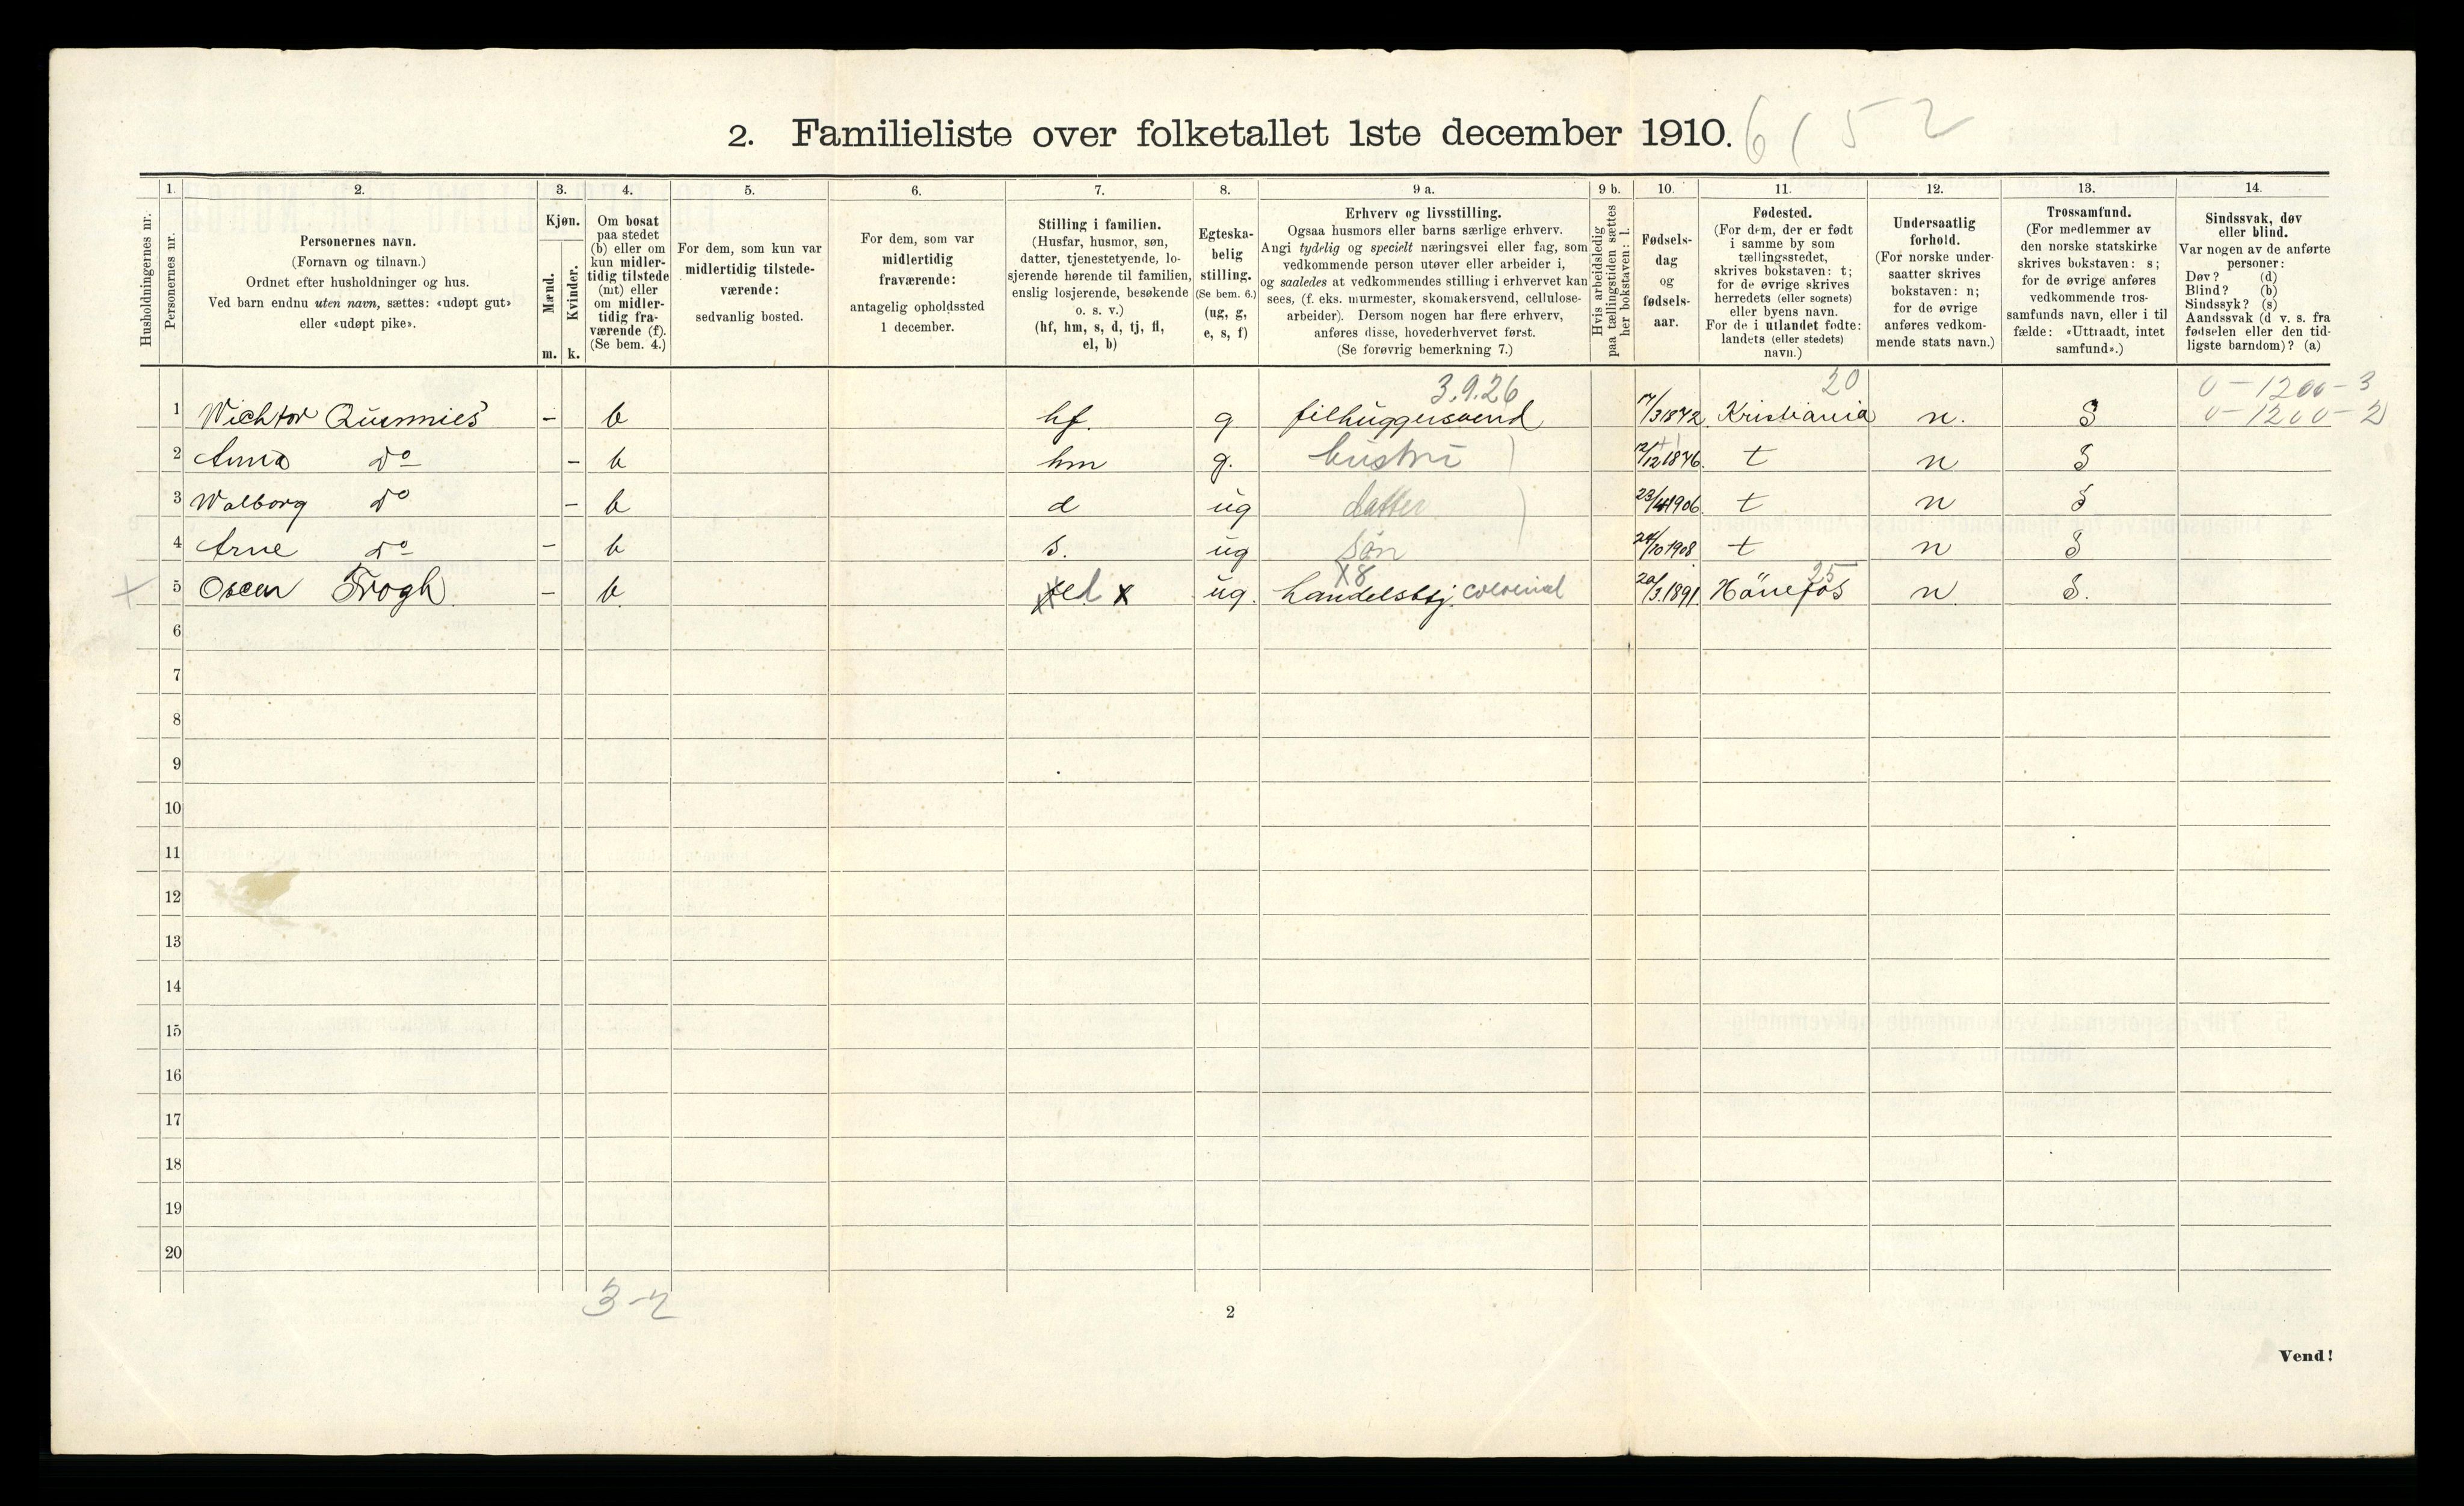 2. Familieliste over folketallet 1ste december 1910.
6 ( 5 2
1. 2. 3. 4. 5. 6. 7. 8. 9 a. 9 b. 10. 11. 12. 13. 14.
Husholdningernes nr.
Personernes nr.
Personernes navn.
(Fornavn og tilnavn.)
Ordnet efter husholdninger og hus.
Ved barn endnu uten navn, sættes: «udøpt gut»
eller «udøpt pike».
Kjøn.
Mænd.
Kvinder.
m. k.
Om bosat
paa stedet
(b) eller om
kun midler-
tidig tilstede
(mt) eller
om midler-
tidig fra-
værende (f).
(Se bem. 4.)
For dem, som kun var
midlertidig tilstede-
værende:
sedvanlig bosted.
For dem, som var
midlertidig
fraværende:
antagelig opholdssted
1 december.
Stilling i familien.
(Husfar, husmor, søn,
datter, tjenestetyende, lo-
sjerende hørende til familien,
enslig losjerende, besøkende
o. s. v.)
(hf, hm, s, d, tj, fl,
el, b)
Egteska-
belig
stilling.
(Se bem. 6.)
(ug, g,
e, s, f)
Erhverv og livsstilling.
Ogsaa husmors eller barns særlige erhverv.
Angi tydelig og specielt næringsvei eller fag, som
vedkommende person utøver eller arbeider i,
og saaledes at vedkommendes stilling i erhvervet kan
sees, (f. eks. murmester, skomakersvend, cellulose-
arbeider). Dersom nogen har flere erhverv,
anføres disse, hovederhvervet først.
(Se forøvrig bemerkning 7.)
Hvis arbeidsledig
paa tællingstiden sættes
her bokstaven: l.
Fødsels-
dag
og
fødsels-
aar.
Fødested.
(For dem, der er født
i samme by som
tællingsstedet,
skrives bokstaven: t;
for de øvrige skrives
herredets (eller sognets)
eller byens navn.
For de i utlandet fødte:
landets (eller stedets)
navn.)
Undersaatlig
forhold.
(For norske under-
saatter skrives
bokstaven: n;
for de øvrige
anføres vedkom-
mende stats navn.)
Trossamfund.
(For medlemmer av
den norske statskirke
skrives bokstaven: s;
for de øvrige anføres
vedkommende tros-
samfunds navn, eller i til
fælde: «Uttraadt, intet
samfund».)
Sindssvak, døv
eller blind.
Var nogen av de anførte
personer:
Døv? (d)
Blind? (b)
Sindssyk? (s)
Aandssvak (d v. s. fra
fødselen eller den tid-
ligste barndom)? (a)
3.9.26 20 0 - 1200 - 3
1 Wichtor – b hf. g filhuggersvend 1872 Kristiania n. S 0 - 1200 - 2
2 Anna Do – b hm g. hustru 12/12 1876. t n S
3 Walborg Do – b d ug datter 23/4 1906 t n S
4 Arne Do – b s. ug søn 1908 t n S
X8 25
5 Oscar Trogh – b el x ug. handelsbtj. colonial 20/3 1891 Hönefos n S.
6
7
8
9
10
11
12
13
14
15
16
17
18
19
20
3-2
2
Vend!